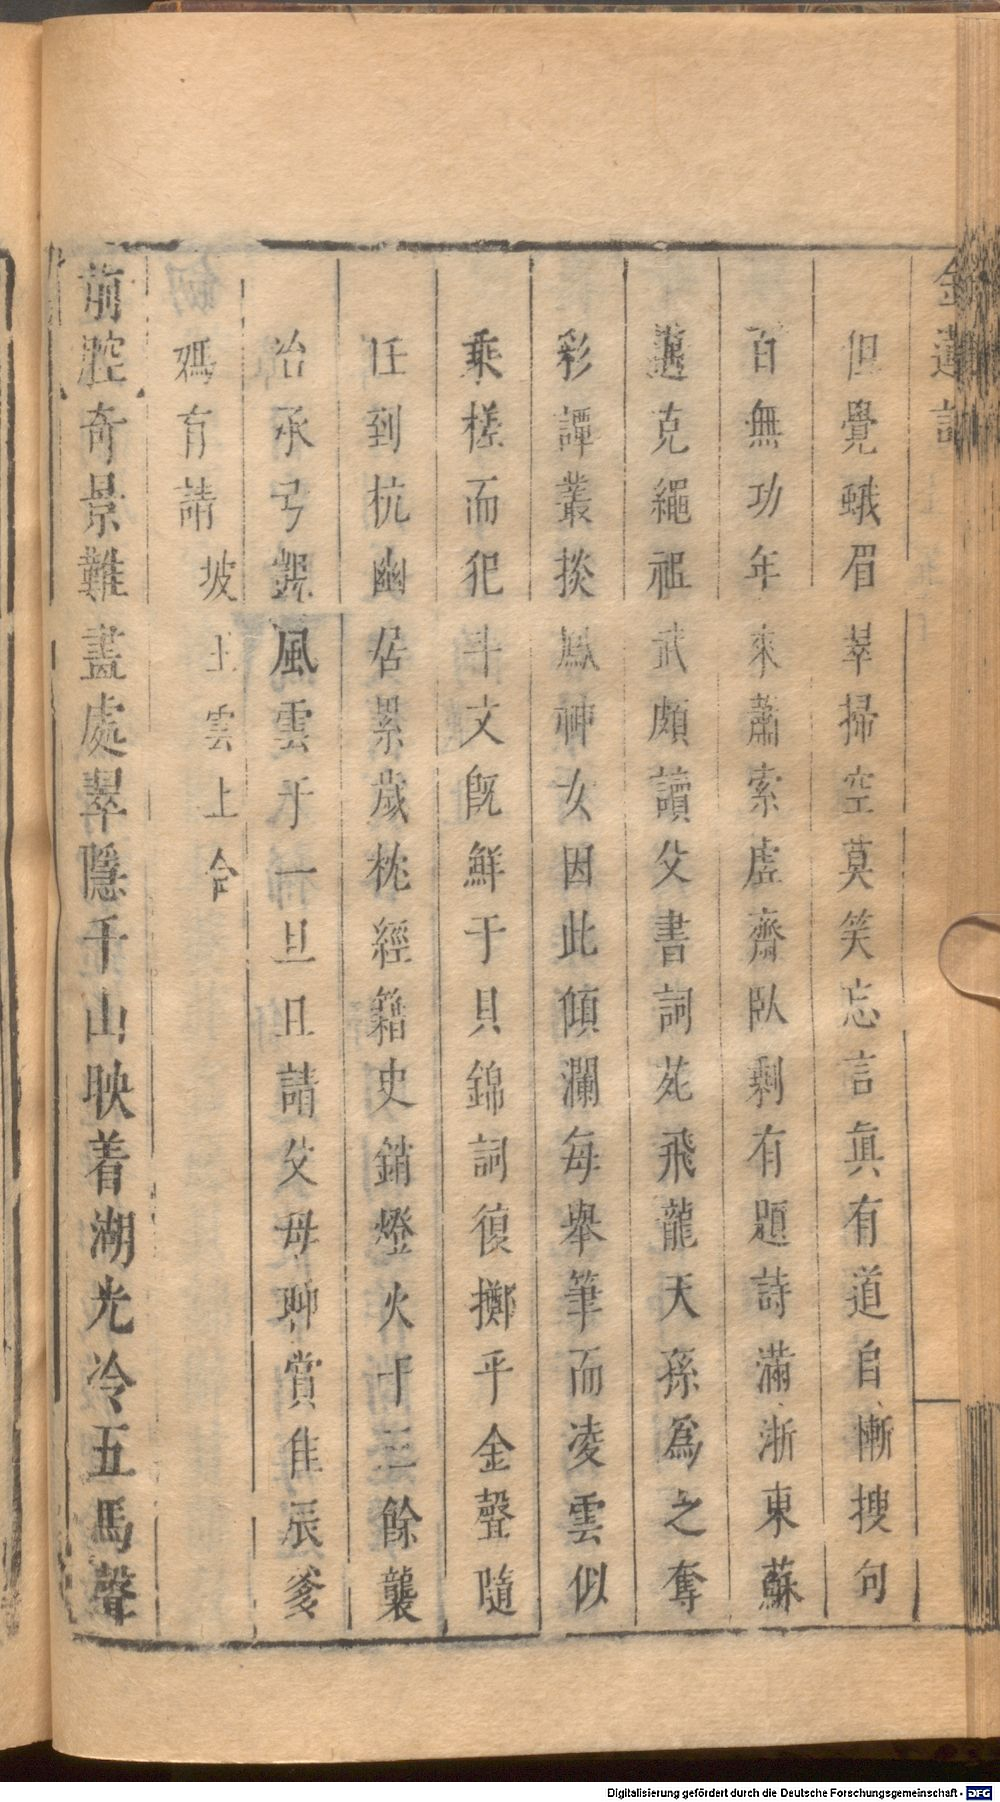 金蓮記
但覺蛾眉翠掃空莫笑忘言眞有道自慚搜句
百無功年來蕭索虛齋臥剩有題詩滿浙東蘇
邁克繩祖武頗讀父書詞苑飛龍天孫爲之奪
彩譚叢掞鳳神女因此傾瀾每舉筆而凌雲似
乘槎而犯斗文旣鮮于貝錦詞復擲乎金聲隨
任到杭幽居累歲枕經籍史銷燈火十三餘襲
冶承弓鍛風雲于一旦且請父母聊賞佳辰爹
媽有請坡上雲上合
前腔奇景難畫處翠隱千山映着湖光冷五馬聲
Digitalisierung gefördert durch die Deutsche Forschungsgemeinschaft - DFG